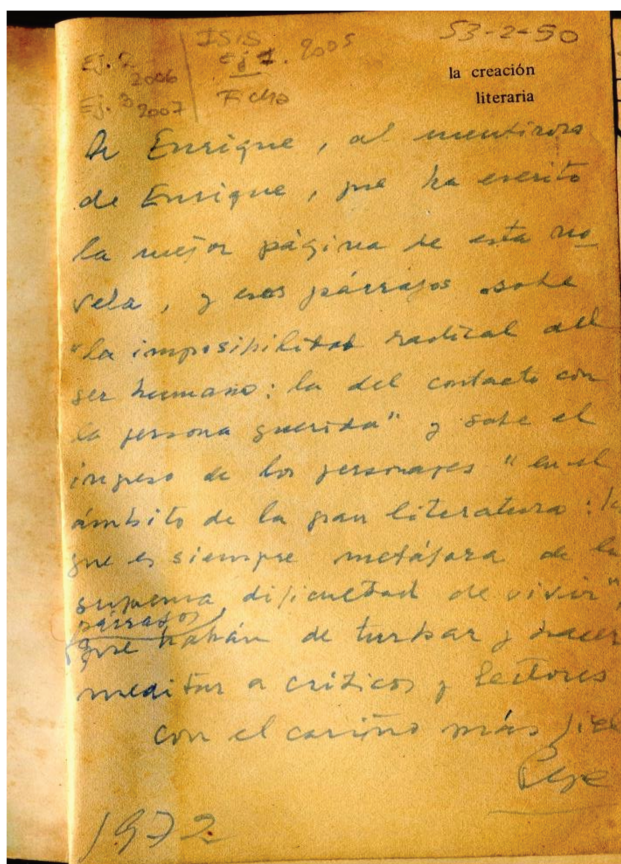 53-2-50
ISIS
Ej. 1. 2005
Ficha
Ej. 2
2006
Ej. 3
2007
la creación
literaria
A Enrique, al mentiroso
de Enrique, que ha escrito
la mejor página de esta no
vela, y esos párrafos sobre
"la imposibilidad radical del
ser humano: la del contacto con
la persona querida" y sobre el
ingreso de los personajes "en el
ámbito de la gran literatura: la
que es siempre metáfora de la
suprema dificultad de vivir",
párrafos,
que habrán de turbar y hacer
meditar a críticos y lectores
con el cariño más fiel
Pepe
1972